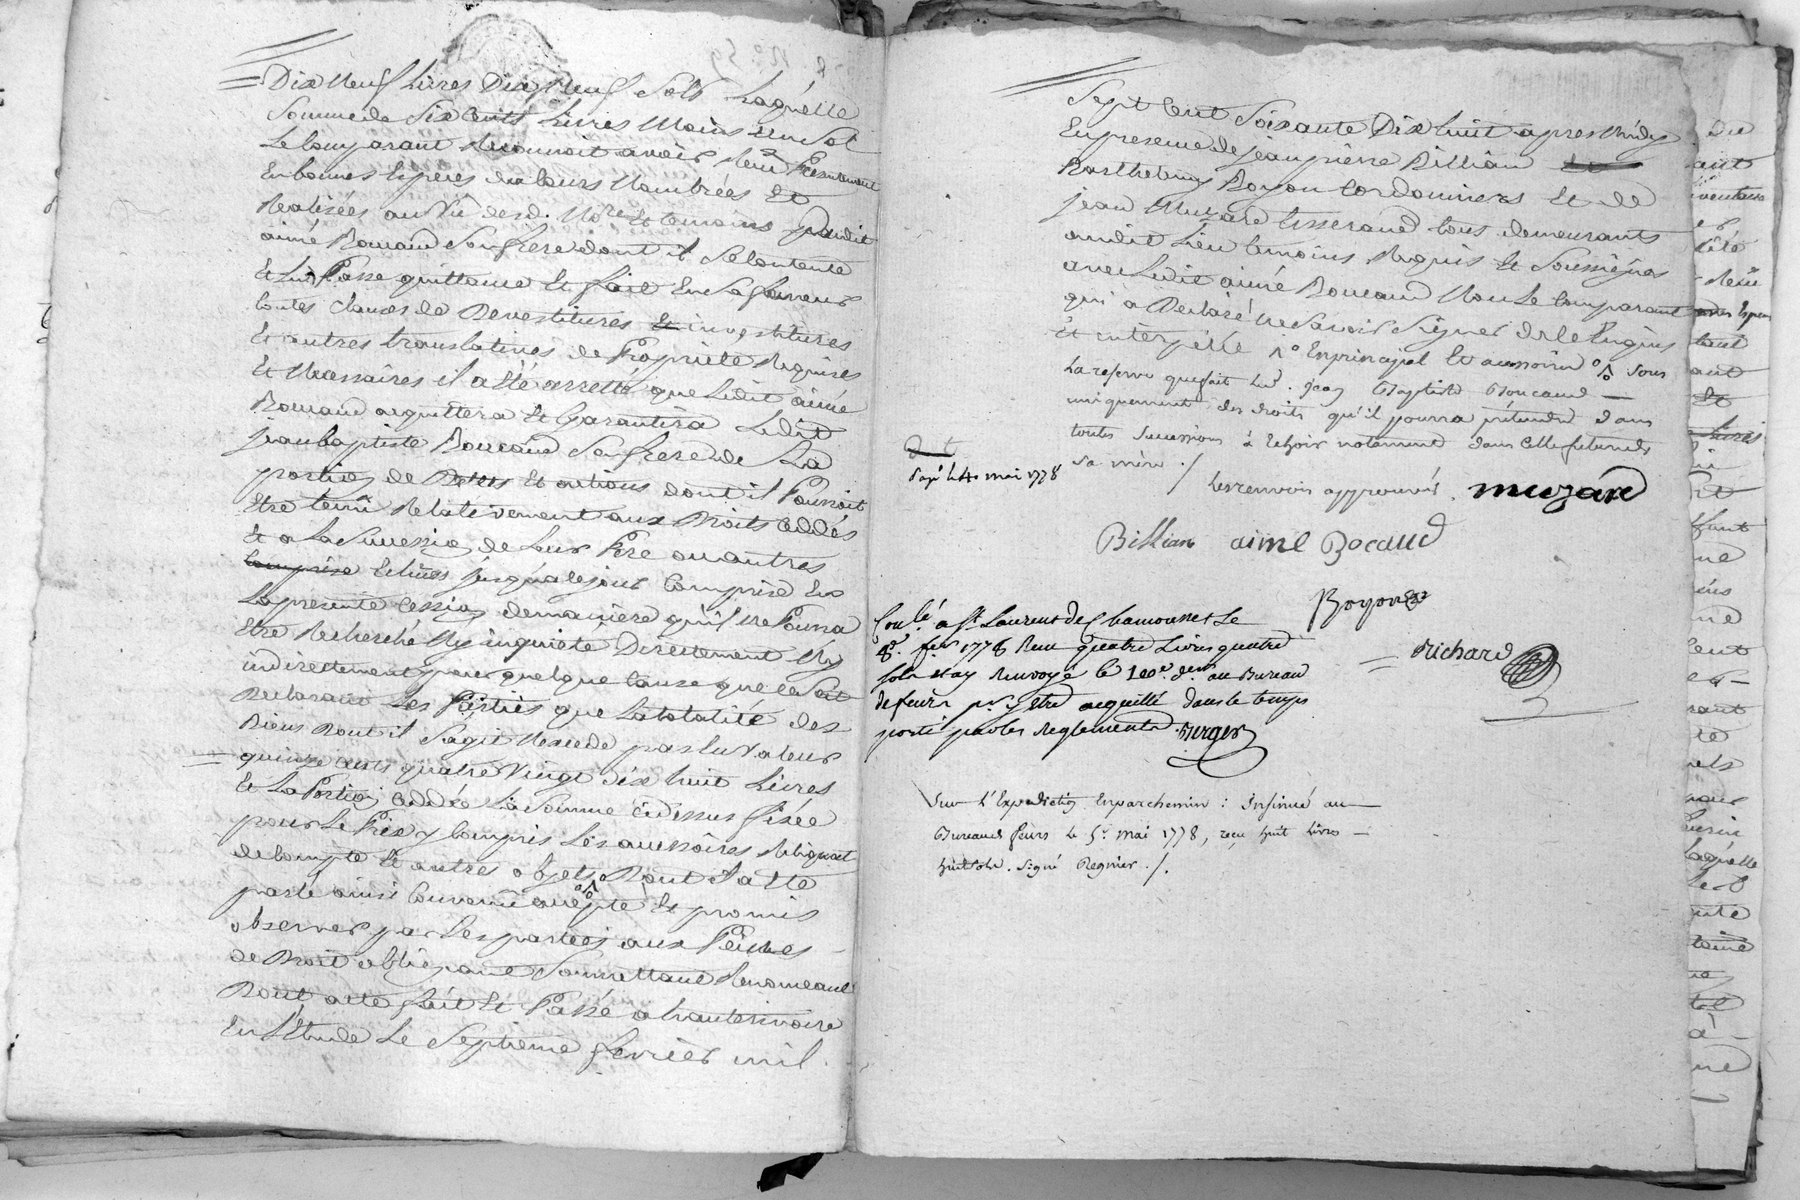 Dix Neuf Livres Dix Neuf Sols Laquelle
Somme de Six Cents Livres Moins un Sol
Le Comparant Reconnoit avoir Reçu Presentement
En bonnes Especes du Cours Nombrées Et
Realisées au Vu desd. Nore et temoins Dudit
aimé Boucaud Son frere dont il Se Contente
Et Lui Passe quittance Et fait En Sa faveur
toutes Clauses de Devestitures et investitures
Et autres translatives de Propriete Requises
Et Necessaires il a Eté arretté que Ledit aimé
Boucaud acquittera Et Garantira Ledit
jean baptiste Boucaud Son frere de La
portion de Dettes Et actions dont il Pourroit
Etre tenu Relativement aux Droits Cedés
Et a La Succession de Leur Pere ou autres
Comprise Echues jusqu'a ce jour Comprise En
La presente Cession de maniere qu'il Ne Pourra
Etre Recherché Ny inquieté Directement Ny
indirectement pour quelque Cause que ce Soit
Declarant Les Parties que La totalité des
Biens Dont il S'agit N'excede pas La Valeur
quinze Cents quatre Vingt dix huit Livres
Et La Portion Cedée La Somme Cidessus fixée
pour Le Prix y Compris Les accessoires Reliquat
de Compte Et autres objets Dont A Eté
parlé ainsi Convenu accepté Et promis
observer par Les parties aux Peines
de Droit obligeant Soumettant Renonceant
Dont acte fait Et Passé a hauterivoire
En L'Etude Le Septieme fevrier mil
Sept Cent Soixante Dix huit apres Midy
En presence de jean pierre Billian et
Barthelemy Boyon Cordonniers Et de
jean Muzard tisserand tous demeurants
audit Lieu temoins Requis Et Soussignes
avec Ledit aimé Boucaud Non Le Comparant
qui a Declaré Ne Savoir Signer de Ce Enquis
Et interpellé 1° En principal Et accessoires % Sous
La reserve que fait Led. jean Baptiste Boucaud —
uniquement des droits qu'il pourra pretendre dans
toutes Successions à Echoir notamment dans Celle future de
Sa mère ./
Les renvois approuvés. muzard
mai 1778
Billian aimé Bocaud
Boyon
Richard
Conlé. a St. Laurent de Chamousset Le
8e. fer 1778 Reçu quatre Livres quatre
sols et ay Renvoyé le 100e. der au Bureau
de feurs pr. y etre acquitté dans le temps
porté par les Reglements. Berger
Sur L'Expedition En parchemin : Insinué au —
Bureau de feurs Le 5e. mai 1778, reçu huit Livres —
huit sols. Signé Regnier ./.